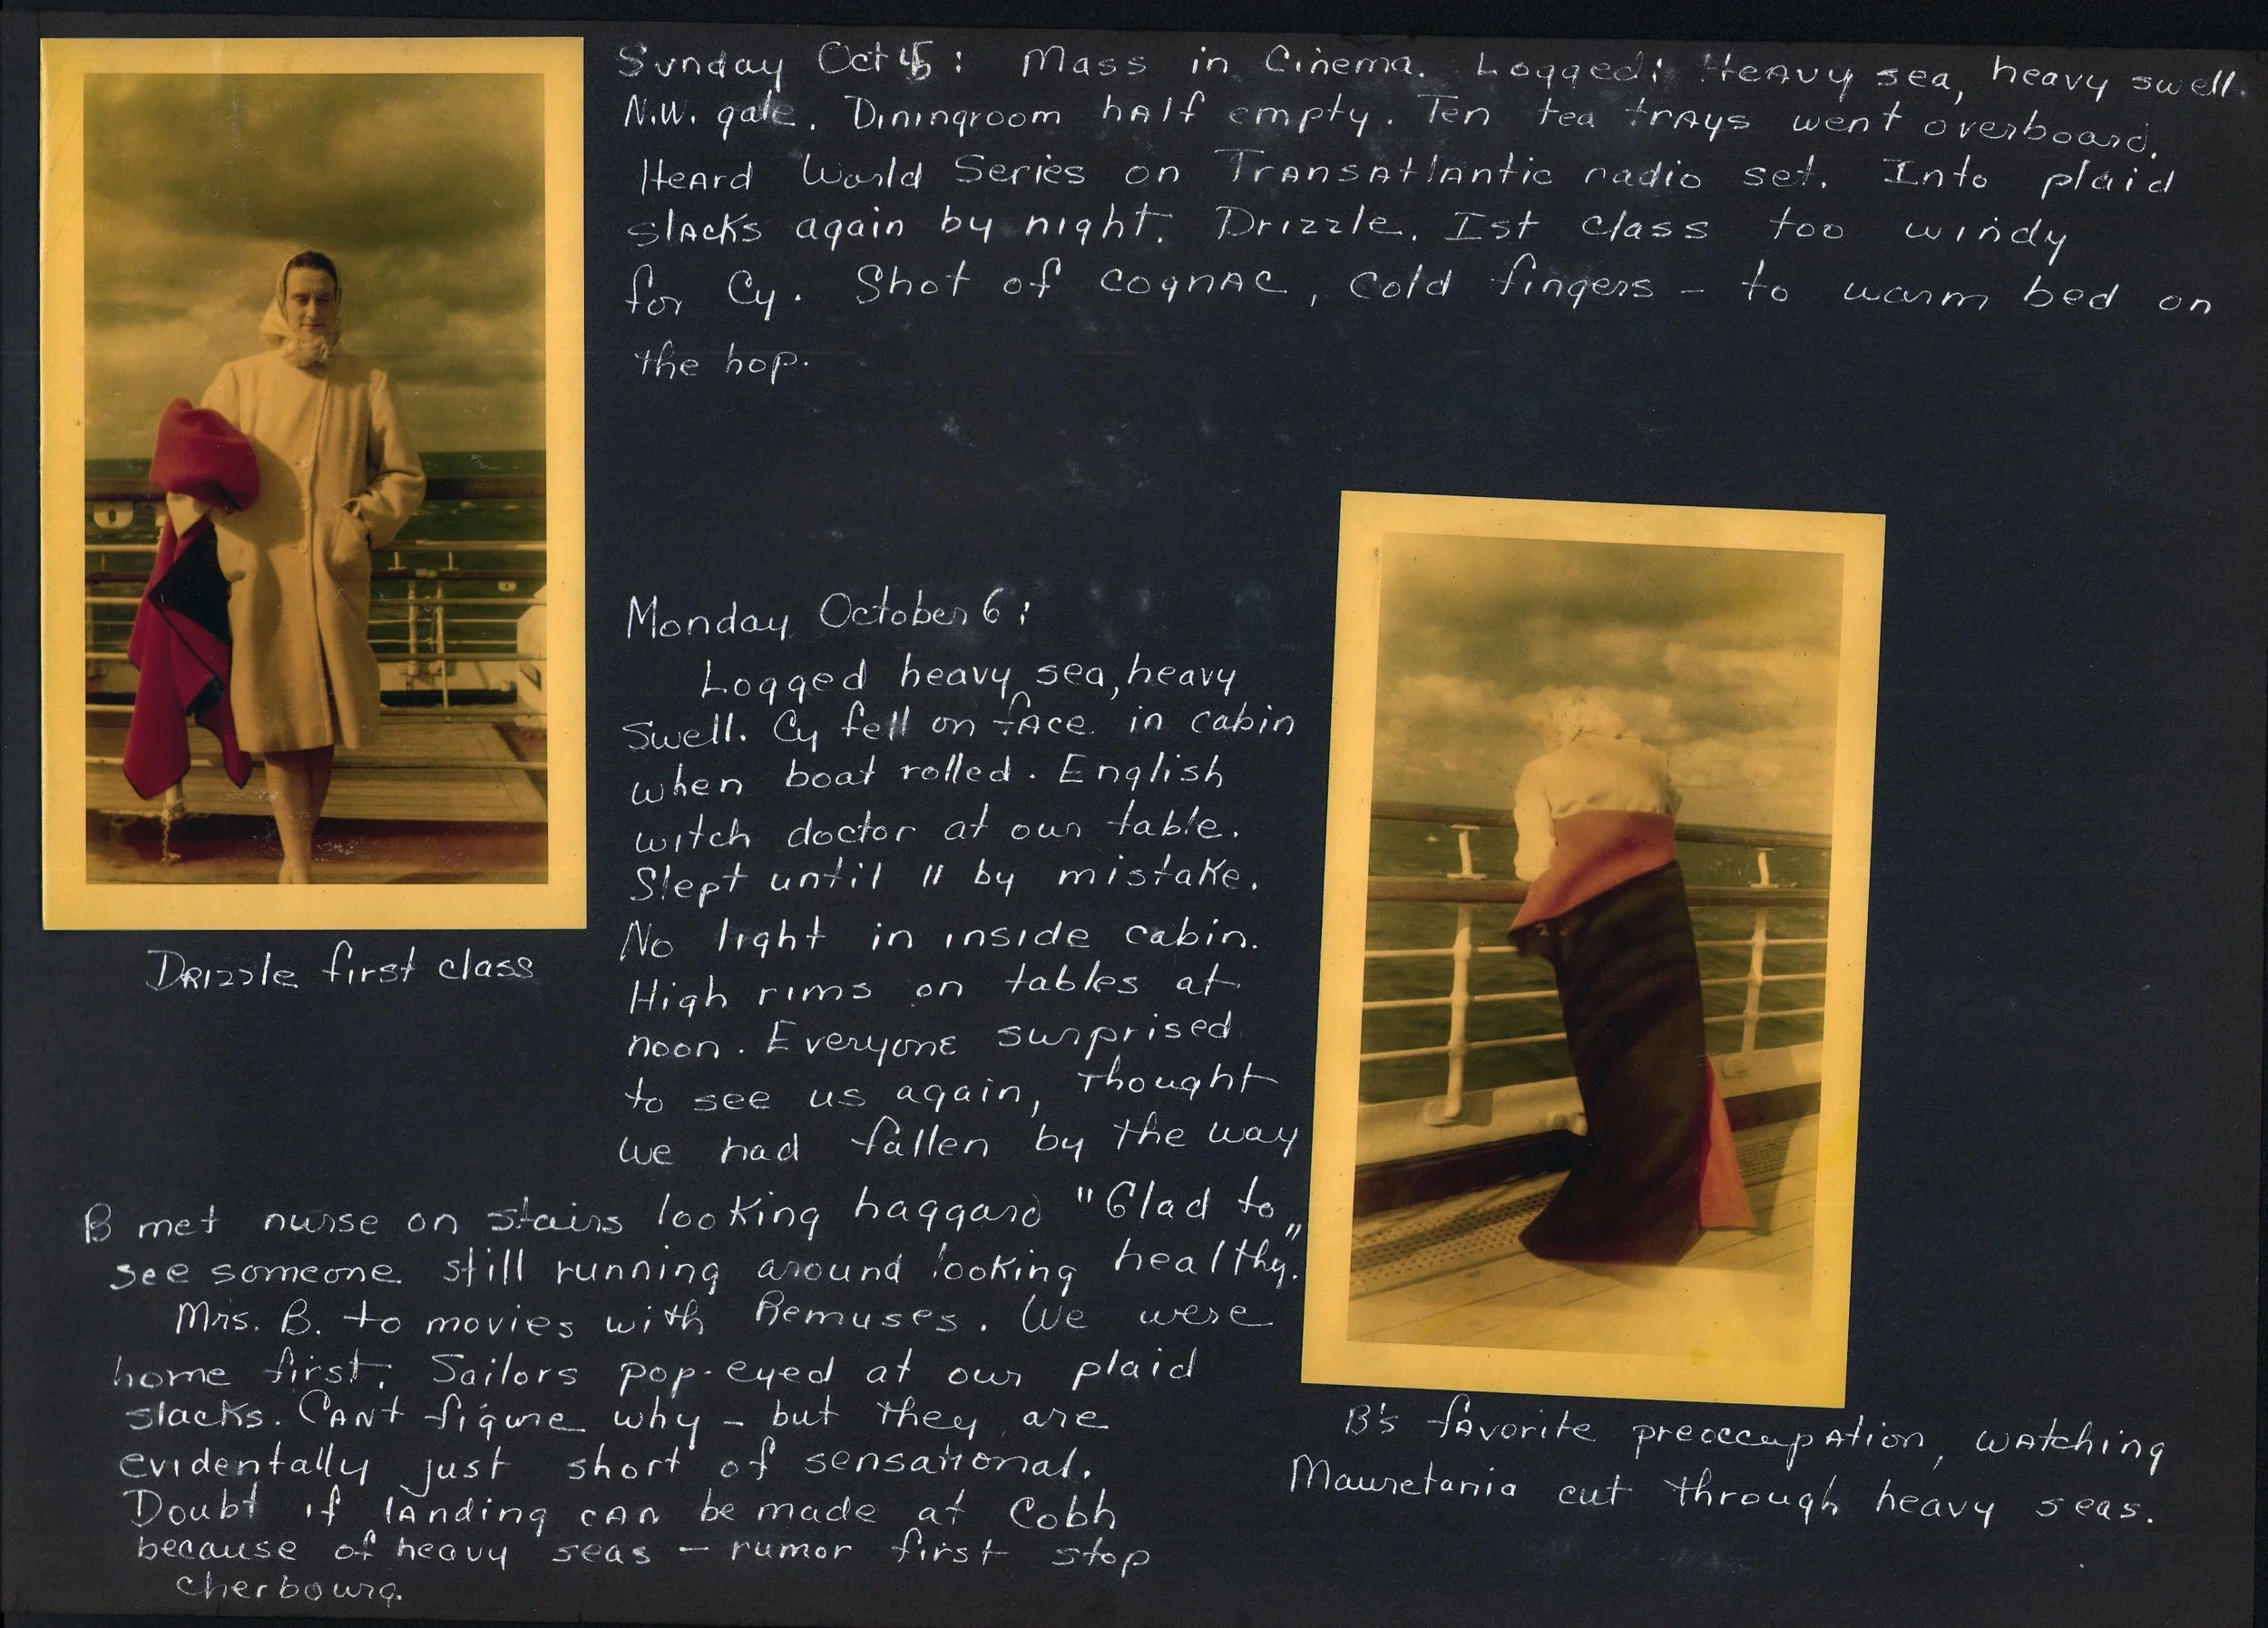 Sunday Oct 5: Mass in Cinema. Logged: Heavy sea, heavy swell.
N.W. gale. Diningroom half empty. Ten tea trays went overboard.
Heard World Series on Transatlantic radio set. Into plaid
slacks again by night. Drizzle. Ist class too windy
for Cy. Shot of cognac, cold fingers - to warm bed on
the hop.
Monday October 6:
Logged heavy sea, heavy
swell. Cy fell on face in cabin
when boat rolled. English
witch doctor at our table.
Slept until 11 by mistake.
No light in inside cabin.
High rims on tables at
noon. Everyone surprised
to see us again, thought
we had fallen by the way
B met nurse on stairs looking haggard "Glad to
see someone still running around looking healthy."
Mrs. B. to movies with Remuses. We were
home first. Sailors pop-eyed at our plaid
slacks. Cant figure why - but they are
evidentally just short of sensational.
Doubt if landing can be made at Cobh
because of heavy seas - rumor first stop
cherbourg.
Drizzle first class
B's favorite preoccupation, watching
Mauretania cut through heavy seas.